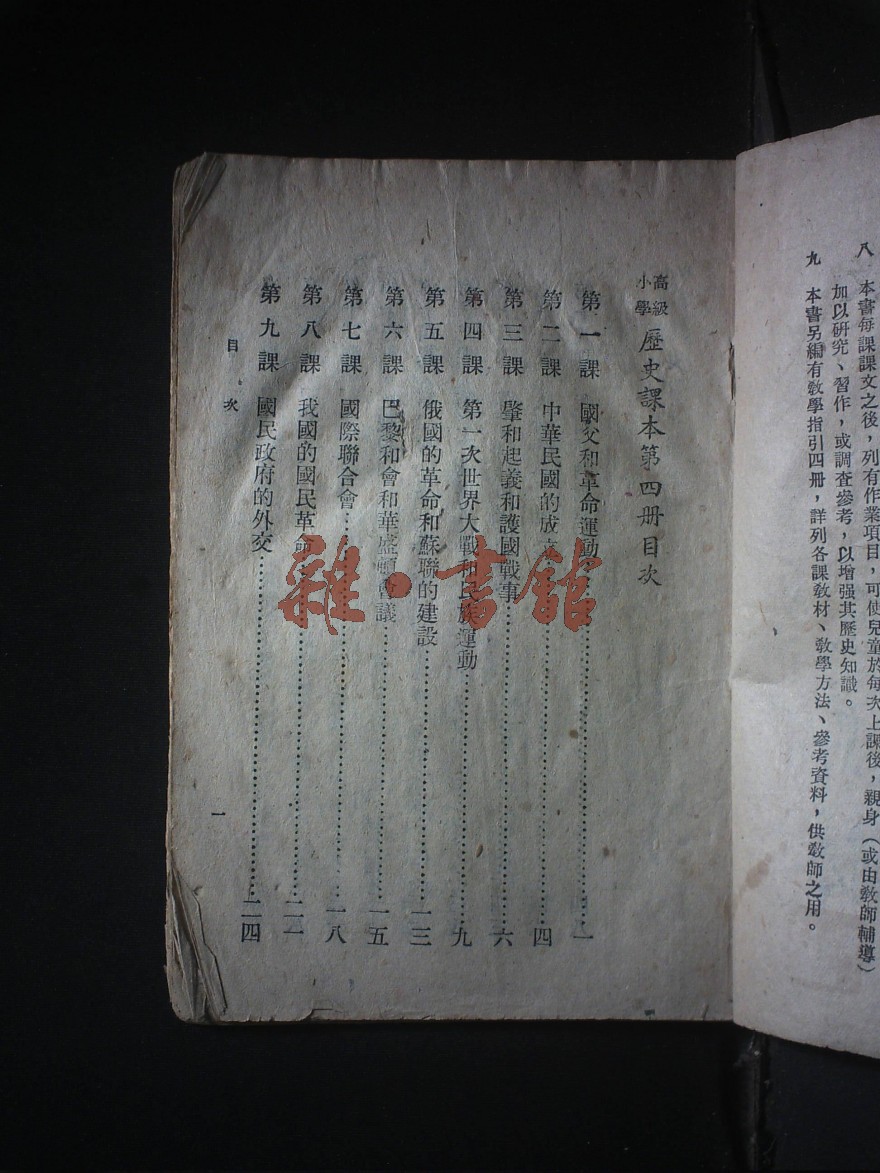 八　本書每課課文之後，列有作業項目，可使兒童於每次上課後，親身（或由教師輔導）
加以研究、習作，或調查參考，以增强其歷史知識。
九　本書另編有教學指引四册，詳列各課教材、教學方法、參考資料，供教師之用。
高級小學歷史課本第四册目次
第一課　國父和革命運動……一
第二課　中華民國的成立……四
第三課　肇和起義和護國戰事……六
第四課　第一次世界大戰和民族運動……九
第五課　俄國的革命和蘇聯的建設……一三
第六課　巴黎和會和華盛頓會議……一五
第七課　國際聯合會……一八
第八課　我國的國民革命……二一
第九課　國民政府的外交……二四
目次
一
雜·書館